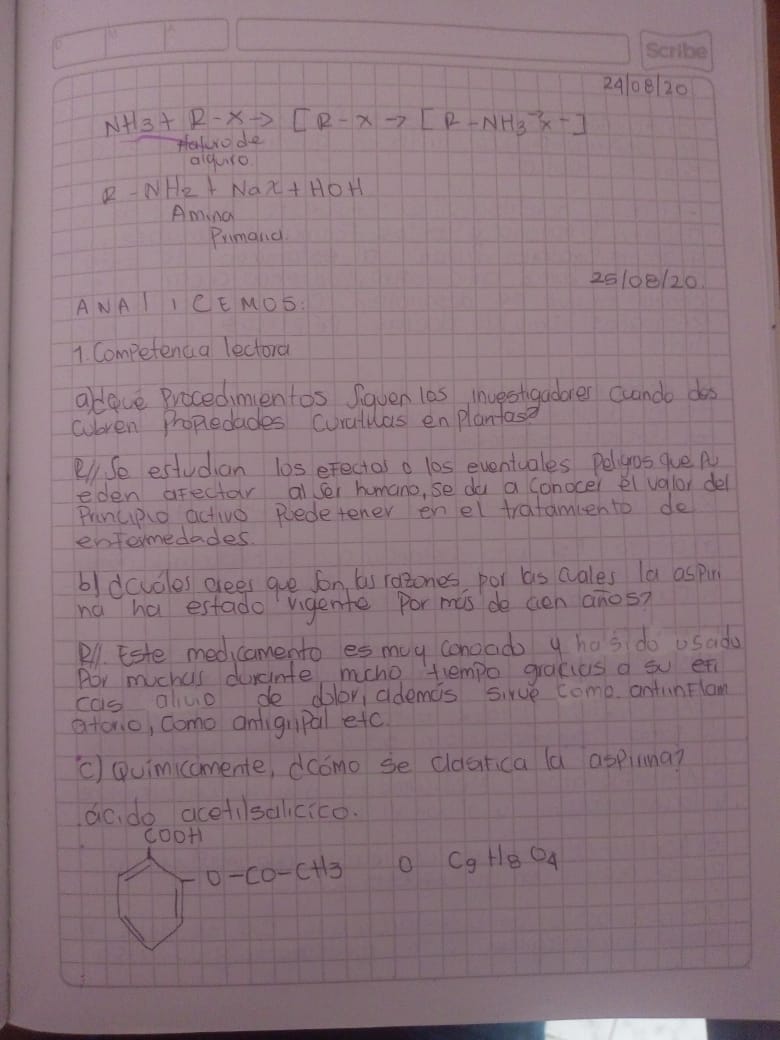 D M A
Scribe
24/08/20
NH3 + R-X → [R-X → [R-NH3⁺X⁻]
Haluro de
alquiro
R-NH2 + NaX + HOH
Amina
Primaria
25/08/20
ANALICEMOS:
1. Competencia lectora
a) ¿Qué Procedimientos siguen los investigadores cuando des
cubren Propiedades curativas en Plantas?
R// Se estudian los efectos o los eventuales Peligros que Pu
eden afectar al ser humano, se da a conocer el valor del
Principio activo Puede tener en el tratamiento de
enfermedades.
b) ¿cuáles crees que son las razones por las cuales la aspiri
na ha estado vigente Por más de cien años?
R//. Este medicamento es muy conocido y ha sido usado
Por muchas durante mucho tiempo gracias a su efi
cas alivio de dolor, además sirve como antiinflam
atorio, como antigripal etc.
c) Químicamente, ¿cómo se clasifica la aspirina?
ácido acetilsalicico.
COOH
O-CO-CH3 O C9H8O4